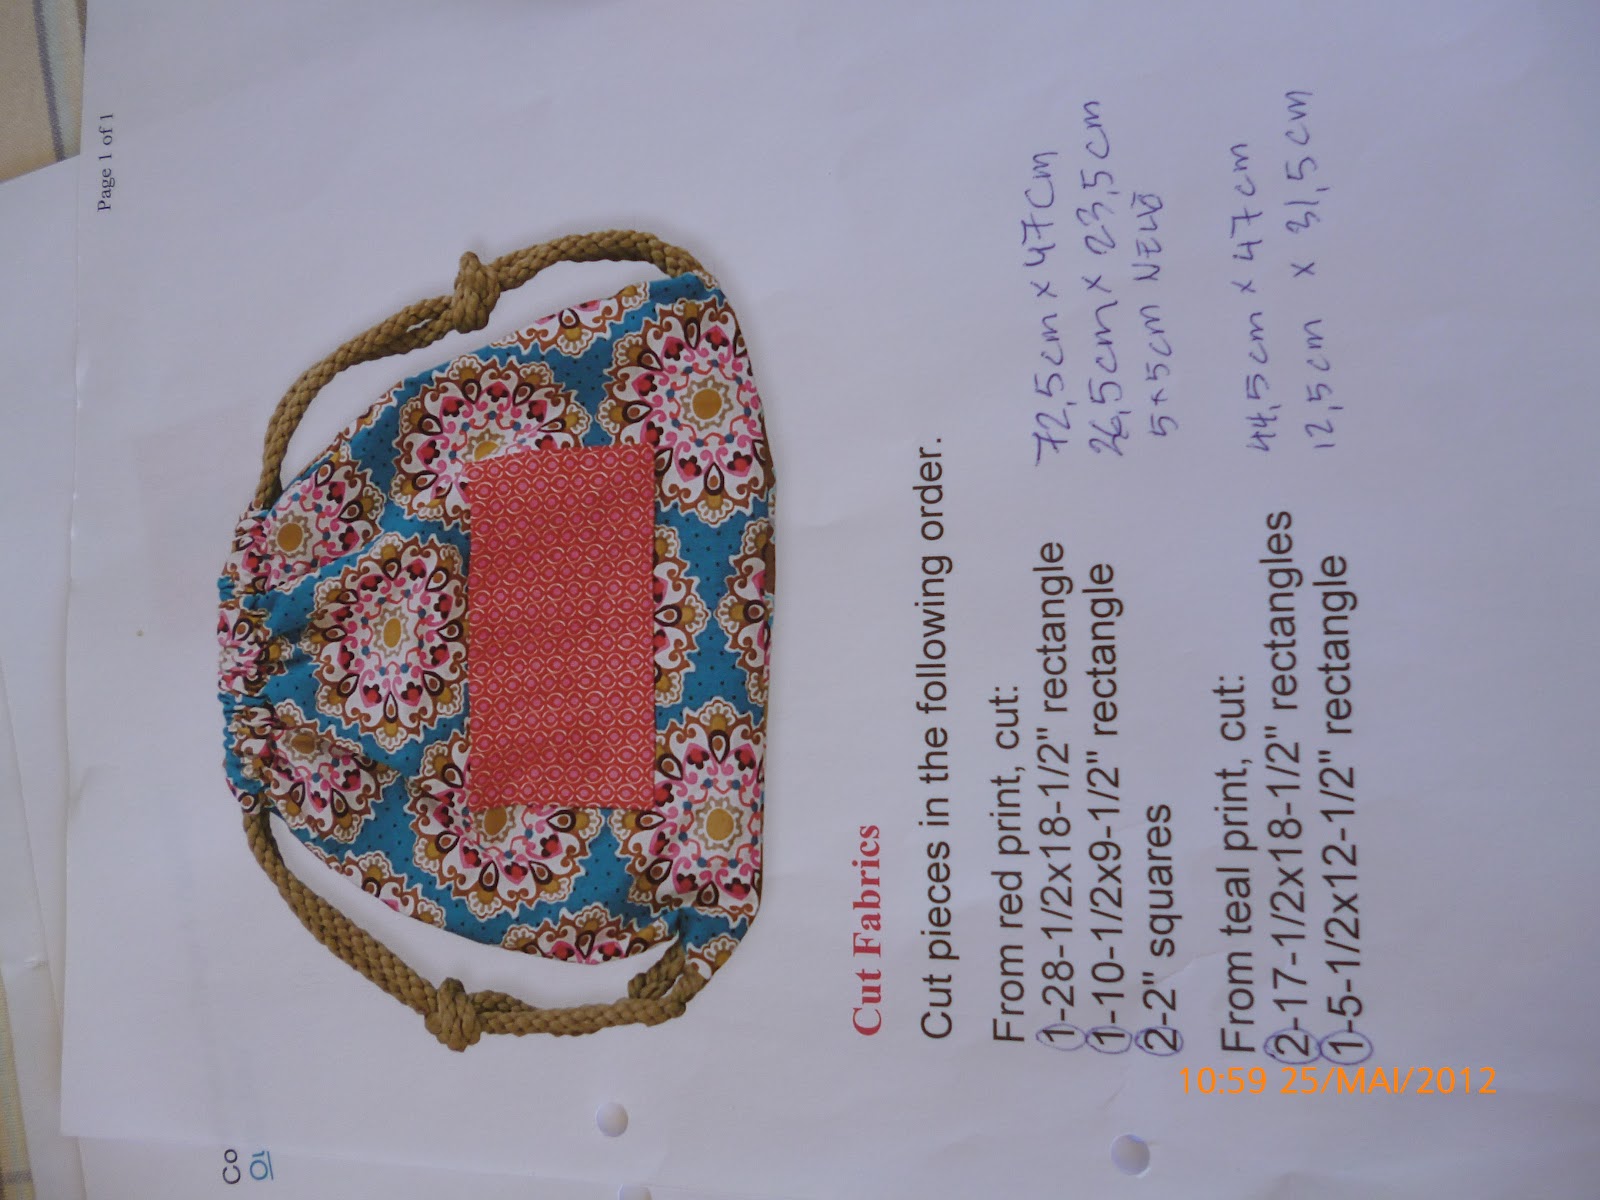 Page 1 of 1
Co
Cut Fabrics
Cut pieces in the following order.
From red print, cut:
1-28-1/2x18-1/2" rectangle 72,5cm x 47cm
1-10-1/2x9-1/2" rectangle 26,5cm x 23,5cm
2-2" squares 5x5cm NELIÖ
From teal print, cut:
2-17-1/2x18-1/2" rectangles 44,5cm x 47cm
1-5-1/2x12-1/2" rectangle 12,5cm x 31,5cm
10:59 25/MAI/2012